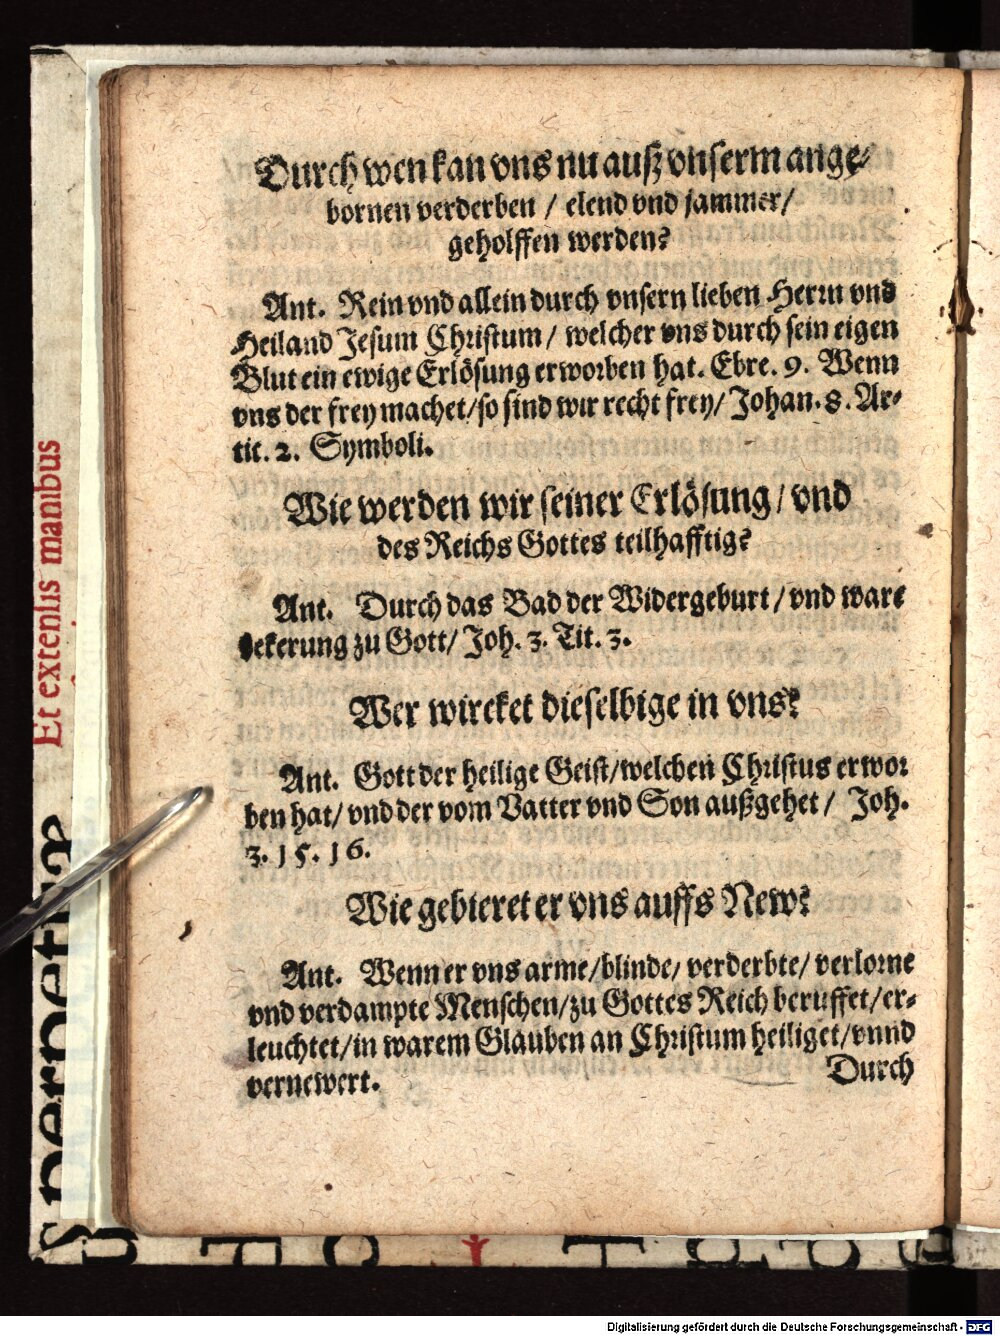 Durch wen kan vns nu auß vnserm ange-
bornen verderben / elend vnd jammer /
geholffen werden?
Ant. Rein vnd allein durch vnsern lieben Herrn vnd
Heiland Jesum Christum / welcher vns durch sein eigen
Blut ein ewige Erlösung erworben hat. Ebre. 9. Wenn
vns der frey machet / so sind wir recht frey / Johan. 8. Ar-
tic. 2. Symboli.
Wie werden wir seiner Erlösung / vnd
des Reichs Gottes teilhafftig?
Ant. Durch das Bad der Widergeburt / vnd ware
bekerung zu Gott / Joh. 3. Tit. 3.
Wer wircket dieselbige in vns?
Ant. Gott der heilige Geist / welchen Christus erwor
ben hat / vnd der vom Vatter vnd Son außgehet / Joh.
3. 15. 16.
Wie gebieret er vns auffs New?
Ant. Wenn er vns arme / blinde / verderbte / verlorne
vnd verdampte Menschen / zu Gottes Reich beruffet / er-
leuchtet / in warem Glauben an Christum heiliget / vnnd
vernewert.
Durch
Et extensis manibus
Digitalisierung gefördert durch die Deutsche Forschungsgemeinschaft - DFG